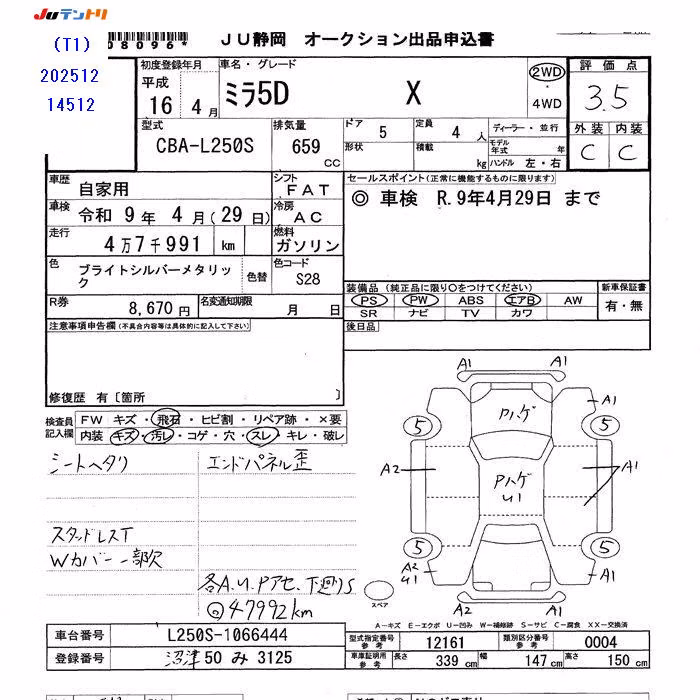 JUテントリ
(T1)
202512
14512
08096*
JU静岡 オークション出品申込書
初度登録年月 車名・グレード 評価点
平成 16 4月 ミラ5D X 2WD ・4WD 3.5
外装 内装
C C
型式 排気量 ドア 5 定員 4 人 ディーラー・並行
CBA-L250S 659 cc 形状 積載 kg モデル年式 年 ハンドル 左・右
車歴 自家用 シフト FAT セールスポイント(正常に機能するものに限ります)
車検 令和 9年 4月(29日) 冷房 AC ◎ 車検 R.9年4月29日 まで
走行 4万7千991 km 燃料 ガソリン
色 ブライトシルバーメタリック 色替 色コード S28
装備品(純正品に限り○をつけてください) 新車保証書
PS PW ABS エアB AW 有・無
SR ナビ TV カワ
R券 8,670円 名変通知期限 月 日
後日品
注意事項申告欄(不具合内容等は具体的に記入して下さい)
修復歴 有〔箇所 〕
検査員記入欄
FW キズ・飛石・ヒビ割・リペア跡・×要
内装 キズ・汚レ・コゲ・穴・スレ・キレ・破レ
シートヘタリ エンドパネル歪
スタッドレスT
Wカバー一部欠
各A.U.Pアセ.下廻りS
◎47992km
A1 A1
A1
Pハゲ
5 5
A2 A1
Pハゲ
U1
5 5
A2
U1 A1
A2 A1
スペア
A-キズ E-エクボ U-凹み W-補修跡 S-サビ C-腐食 XX-交換済
車台番号 L250S-1066444
登録番号 沼津 50 み 3125
型式指定番号 参考 12161 類別区分番号 参考 0004
車庫証明用 参考 長さ 339 cm 幅 147 cm 高さ 150 cm